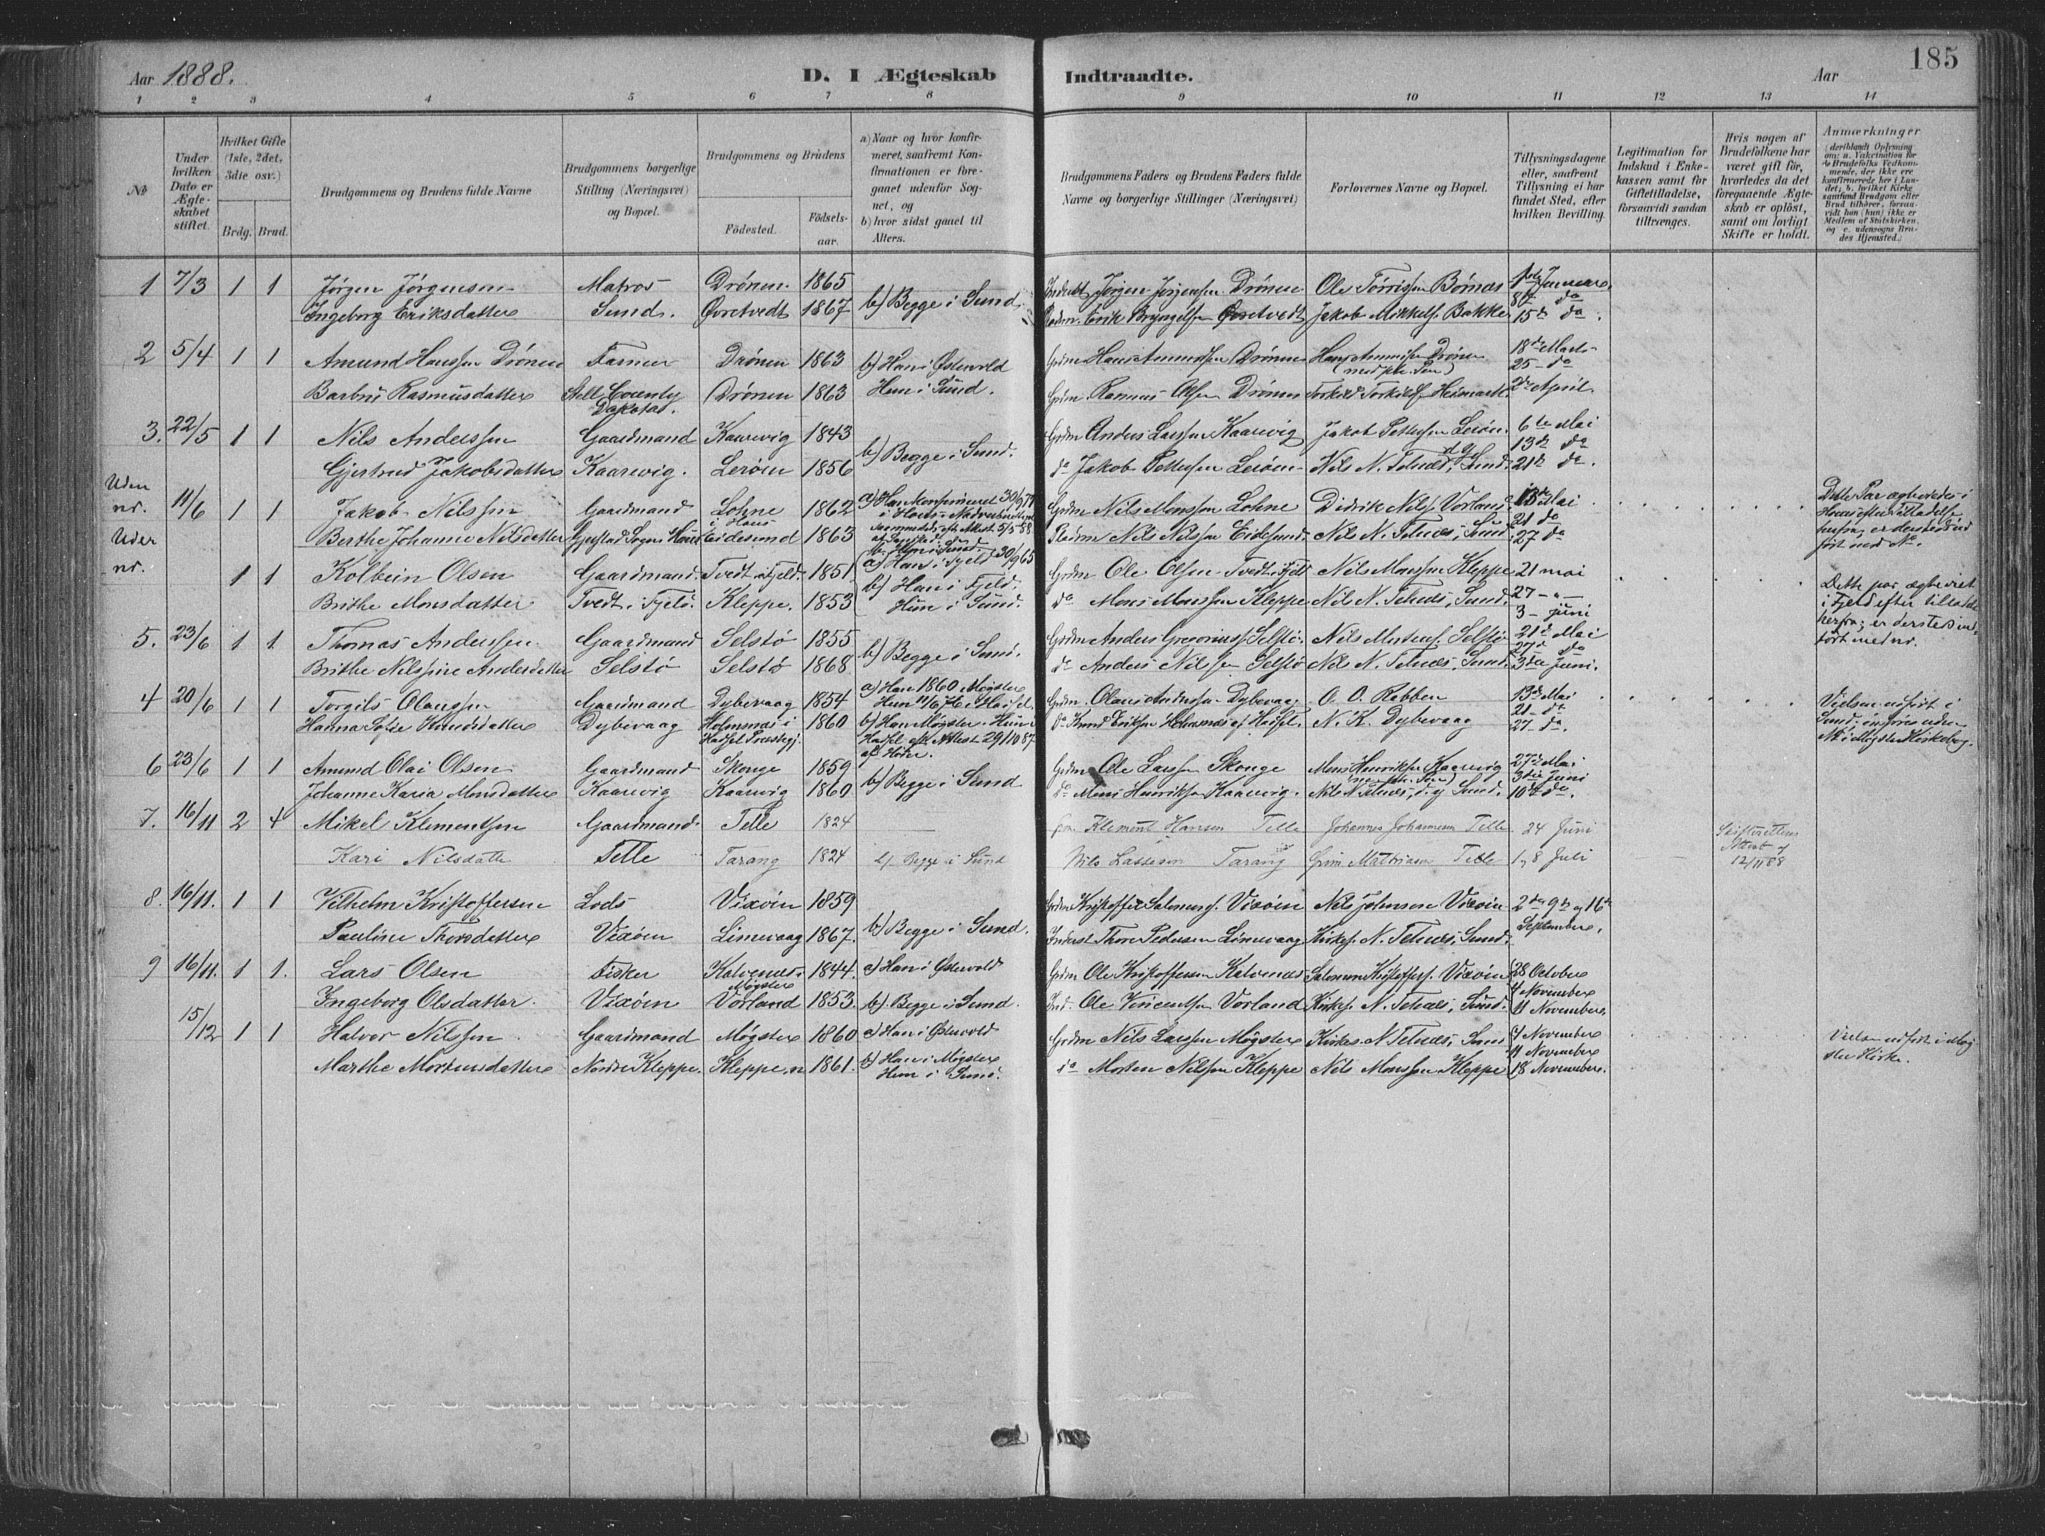 Aar 1888.
D. I Ægteskab
Indtraadte.
Aar
185
1 2 3 4 5 6 7 8 9 10 11 12 13 14
№
Under hvilken Dato er Ægteskabet stiftet.
Hvilket Gifte (1ste, 2det, 3die osv.)
Brdg. Brud.
Brudgommens og Brudens fulde Navne
Brudgommens borgerlige Stilling (Næringsvei) og Bopæl.
Brudgommens og Brudens
Fødested.
Fødselsaar.
a) Naar og hvor konfirmeret, saafremt Konfirmationen er foregaaet udenfor Sognet, og
b) hvor sidst gaaet til Alters.
Brudgommens Faders og Brudens Faders fulde Navne og borgerlige Stillinger (Næringsvei)
Forlovernes Navne og Bopæl.
Tillysningsdagene eller, saafremt Tillysning ei har fundet Sted, efter hvilken Bevilling.
Legitimation for Indskud i Enkekassen samt for Giftetilladelse, forsaavidt saadan tiltrænges.
Hvis nogen af Brudefolkene har været gift før, hvorledes da det foregaaende Ægteskab er opløst, samt om lovligt Skifte er holdt.
Anmærkninger
1 7/3 1 1 Jørgen Jørgensen Matros Drønen 1865 Jørgen Jørgensen Drønen Ole Torrisen Børnæs 1ste Januar
Ingeborg Eriksdatter Sund. Øvretvedt 1867 b) Begge i Sund. Erik Bryngelsen Øvretvedt Jakob Mikkels. Bakke 8de do 15de do.
2 5/4 1 1 Amund Hanssen Drønen Farmer Drønen 1863 b) Han i Østervold Grdm Hans Amundsen Drønen Drønen 18de Marts 25 do
Barbru Rasmusdatter County Dakota. Drønen 1863 Hun i Sund. Grdm Rasmus Olsen Drønen 2den April
3. 22/5 1 1 Nils Anderssen Gaardmand Kaarevig 1843 b) Begge i Sund. Grdm Anders Larssen Kaarevig Jakob Pettersen Lerøen 6te Mai 13de do
Gjertrud Jakobsdatter Kaarevig. Lerøen 1856 do Jakob Pettersen Lerøen Nils N. Telnes, Sund. 21de do.
Uden nr. 11/6 1 1 Jakob Nilssen Gaardmand Lohne i Haus 1862 Grdm Nils Monssen Lohne Didrik Nils. Vorland 13de Mai 21 do
Berthe Johanne Nilsdatter Eidesund 1863 Nils Nilssen Eidesund Nils N. Telnes, Sund. 27 do
Uder nr. 1 1 Kolbein Olsen Gaardmand. Tvedt i Fjeld. 1851 a) Han i Fjeld 30/9 65 Grdm Ole Olsen Tvedt i Fjeld Nils Monsen Kleppe 21 mai
Brithe Monsdatter Tvedt i Fjeld. Kleppe. 1853 b) Han i Fjeld. Hun i Sund. do Mons Monssen Kleppe Nils N. Telnes, Sund. 27 - " - 3 - juni
Dette par ægteviet i Fjeld efter tilladelse herfra; er derstes indført med nr.
5. 23/6 1 1 Thomas Anderssen Gaardmand Selstø 1855 b) Begge i Sund. Grdm Anders Gregorius. Selstø. Nils Monsen Selstø 21de Mai 27de do
Brithe Nilsine Andersdatter Selstø Selstø 1868 do Anders Nilssen Selstø Nils N. Telnes, Sund. 3die Juni.
4 20/6 1 1 Torgils Olaussen Gaardmand Dybevaag 1854 a) Han 1860 Møgster Grdm. Olaus Andersen Dybevaag O. O. Rabben 13de Mai 21 do
Hanna Sofie Knudsdatter Dybevaag Holmsnæs i Hadsel Præstegj. 1860 Do Knud Eriksen Holmsnæs N. K. Dybevaag 27 do
6 23/6 1 1 Amund Olai Olsen Gaardmand Skonge 1859 b) Begge i Sund Grdm Ole Larssen Skonge Mons Henriksen Kaarevig 27de Mai 3die Juni
Johanne Karia Monsdatter Kaarevig Kaarevig 1860 do Mons Henriksen Kaarevig. Nils N. Telnes, Sund. 10de do.
7. 16/11 2 4 Mikel Klementsen Gaardmand Telle 1824 — Klement Hansen Telle Johannes Johannesen Telle 24 Juni
Kari Nilsdatter Telle Tarang 1824 b) Begge i Sund Nils Lassesen Tarang Grim Mathiasen Telle 1 og 8 Juli — Skifterettens Attest af 12/11 88
8. 16/11. 1 1 Vilhelm Kristoffersen Lods Vixøen 1859 Grdm Kristoffer Salomons. Vixøen Nils Johnsen Vixøen 2den 9de og 16de September.
Pauline Thorsdatter Vixøen Limevaag 1867. b) Begge i Sund. Thor Pedersen Limevaag Kirkes. N. Telnes, Sund.
9 16/11. 1 1. Lars Olsen Fisker Kalvenæs Møgster 1844. a) Han i Østervold Grdm Ole Kristoffersen Kalvenæs Salomon Kristoffers. Vixøen 28 October
Ingeborg Olsdatter. Vixøen Vorland 1853. b) Begge i Sund. Ind. Ole Vincentsen Vorland Kirkes. N. Telnes, Sund. 4 November 11 November.
15/12 1 1 Halvor Nilssen Gaardmand Møgster 1860 a) Han i Østervold Grdm Nils Larssen Møgster Kirkes. N Telnes, Sund 4 November 11 November
Marthe Mortensdatter Nordre Kleppe. Kleppe, n 1861. b) Han i Møgster Hun i Sund. do Morten Nilssen Kleppe Nils Monssen Kleppe 18 November.